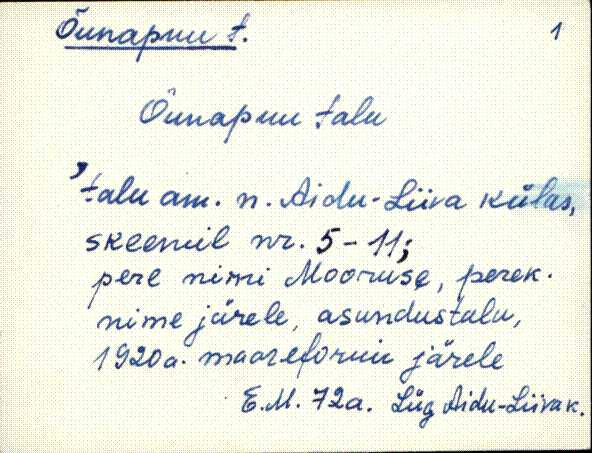 Õunapuu t. 1
Õunapuu talu
'talu am. n. Aidu-Liiva külas,
skeemil nr. 5-11;
pere nimi Mooruse, perek.
nime järele, asundustalu,
1920a. maareformi järele
E.M. 72a. Lüg Aidu-Liiva k.